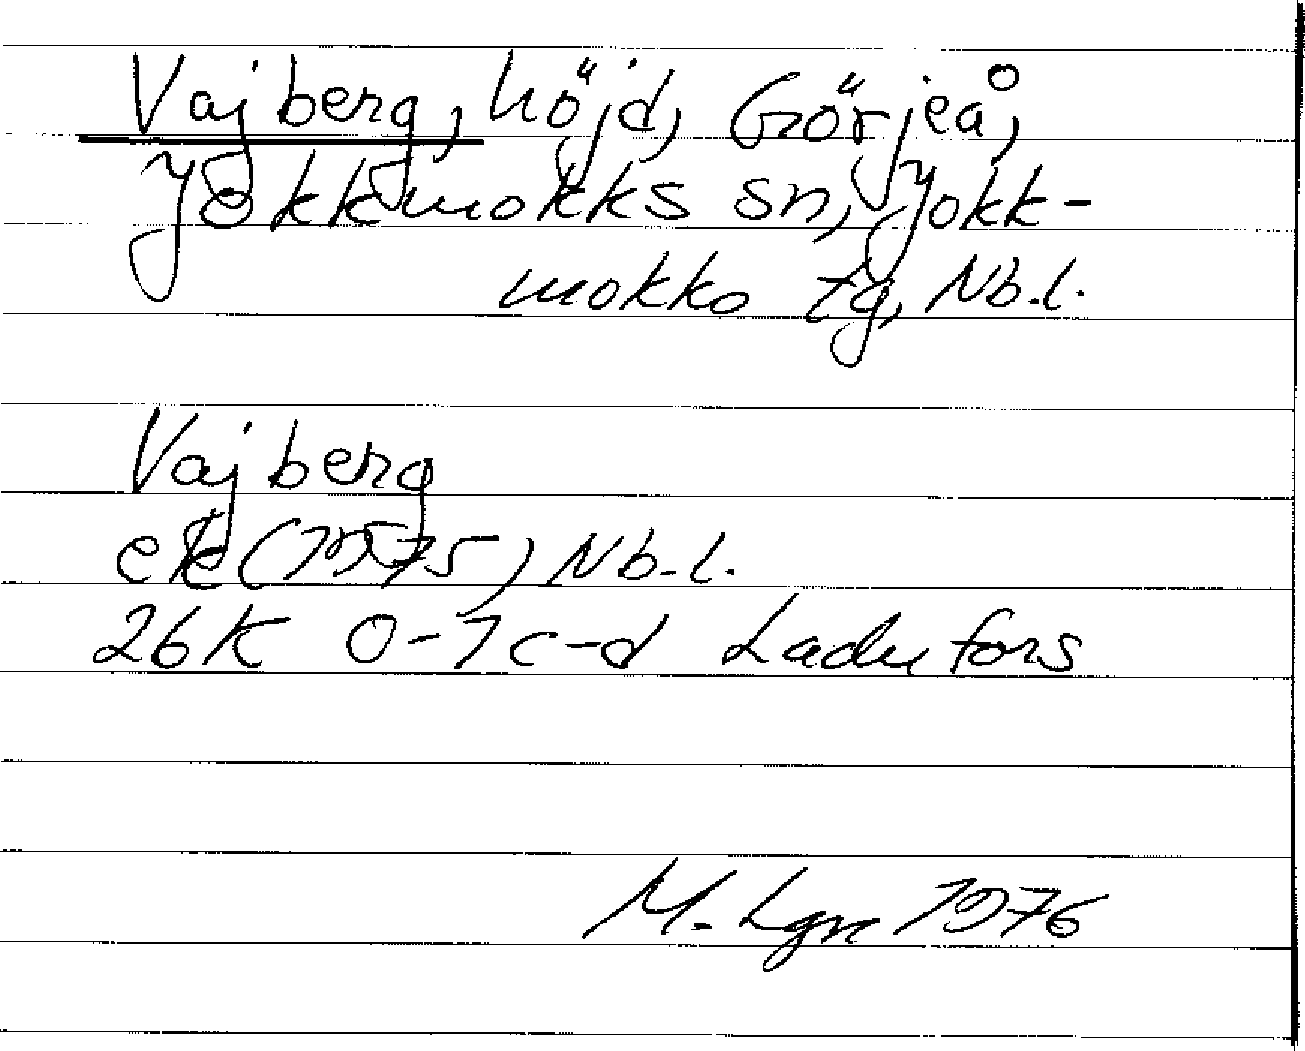 Vajberg, höjd, Görjeå,
Jokkmokks sn, Jokk-
mokks tg, Nb.l.
Vajberg
ek (1975) Nb.l.
26K 0-1 c-d Ladufors
M. Lgn 1976